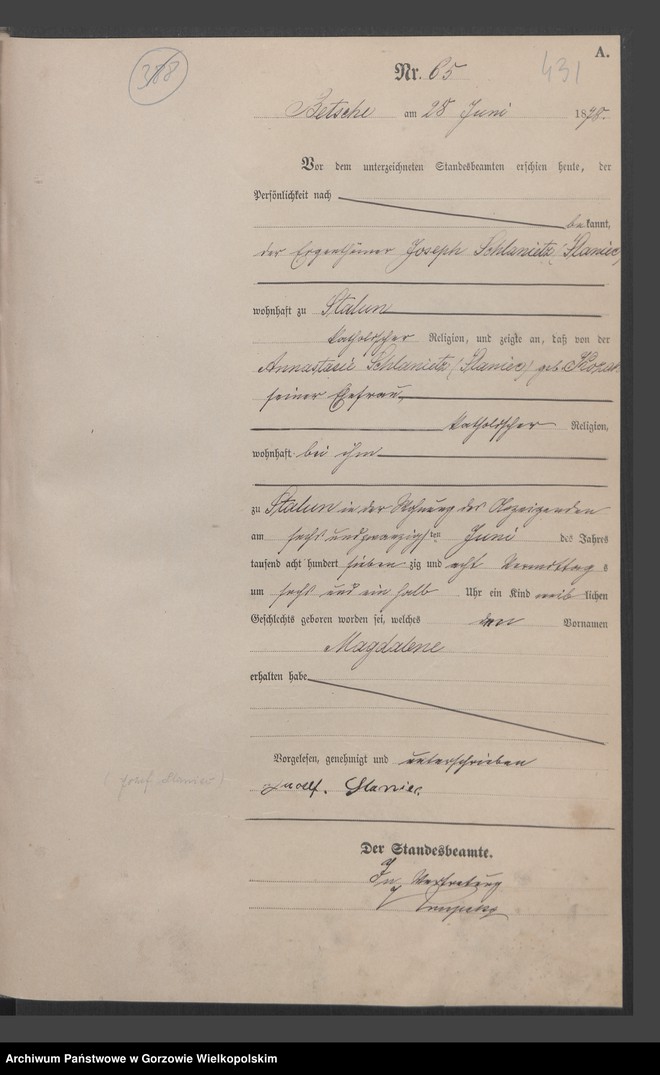 A.
388
431
Nr. 65
Betsche am 28 Juni 1878.
Vor dem unterzeichneten Standesbeamten erschien heute, der
Persönlichkeit nach
bekannt,
der Eigenthümer Joseph Schlanietz (Slaniec)
wohnhaft zu Stalun
katholischer Religion, und zeigte an, daß von der
Annastasie Schlanietz (Slaniec) geb.
seiner Ehefrau,
katholischer Religion,
wohnhaft bei ihm
zu Stalun in der Wohnung des Anzeigenden
am sechs und zwanzigsten Juni des Jahres
tausend acht hundert sieben zig und acht Vormittag s
um sechs und ein halb Uhr ein Kind weib lichen
Geschlechts geboren worden sei, welches den Vornamen
Magdalene
erhalten habe
Vorgelesen, genehmigt und unterschrieben
(Josef Slaniec)
Slaniec
Der Standesbeamte.
In Vertretung
Archiwum Państwowe w Gorzowie Wielkopolskim